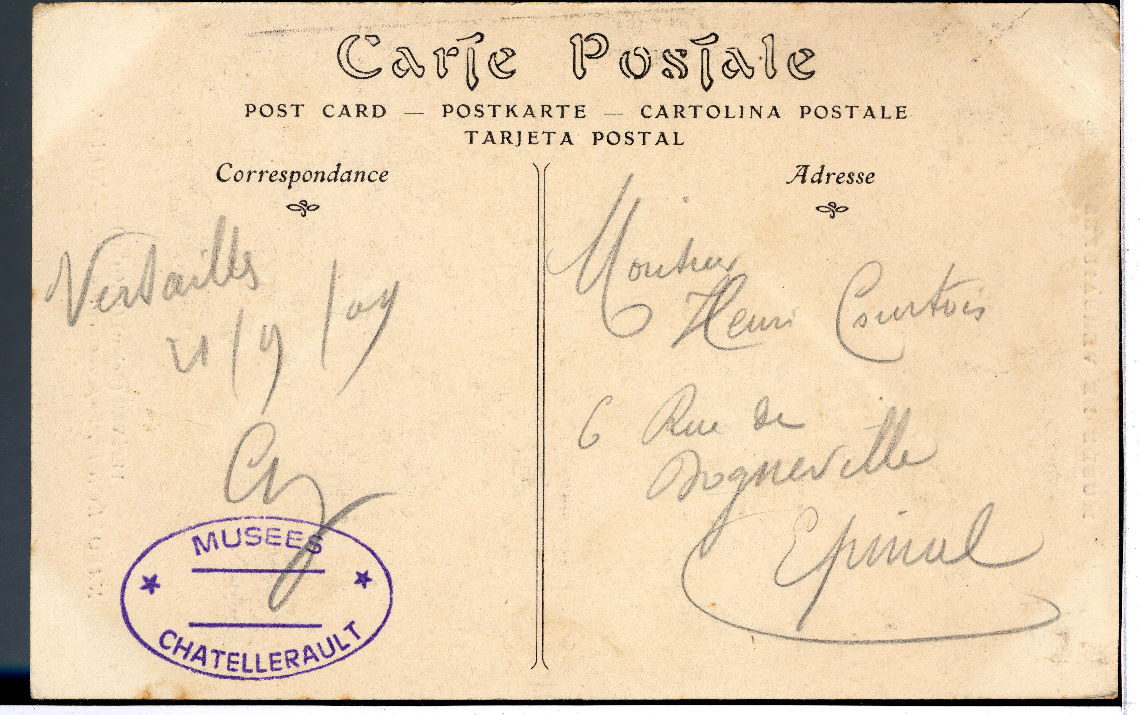 Carte Postale
POST CARD — POSTKARTE — CARTOLINA POSTALE
TARJETA POSTAL
Correspondance
Versailles
21/9/09
MUSEES
CHATELLERAULT
Adresse
Monsieur
Henri Courtois
6 Rue de
Dogneville
Epinal